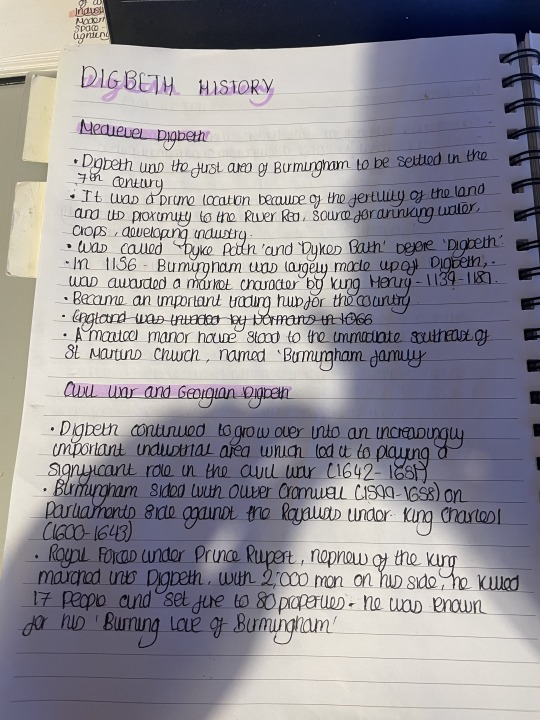 Industr
Modern
space -
lighting
DIGBETH HISTORY
Medieval Digbeth
• Digbeth was the first area of Birmingham to be settled in the
7th century
• It was a prime location because of the fertility of the land
and its proximity to the River Rea, source for drinking water,
crops, developing industry.
• Was called 'Dyke Path' and 'Dykes Bath' before 'Digbeth'.
• In 1156 - Birmingham was largely made up of Digbeth,
was awarded a market character by King Henry - 1139-1189.
• Became an important trading hub for the country
• England was invaded by Normans in 1066
• A moated manor house stood to the immediate southeast of
St Martins Church, named 'Birmingham family
Civil War and Georgian Digbeth
• Digbeth continued to grow over into an increasingly
important industrial area which led it to playing a
significant role in the civil war (1642-1651)
• Birmingham sided with Oliver Cromwell (1599-1658) on
Parliaments side against the Royalists under King Charles I
(1600-1643)
• Royal Forces under Prince Rupert, nephew of the king
marched into Digbeth, with 2,000 men on his side, he killed
17 people and set fire to 80 properties. he was known
for his 'Burning Love of Birmingham'